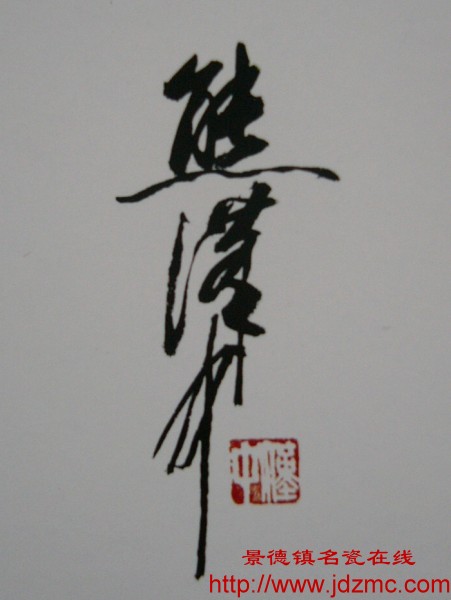 熊漢中
漢中
景德镇名瓷在线
http://www.jdzmc.com